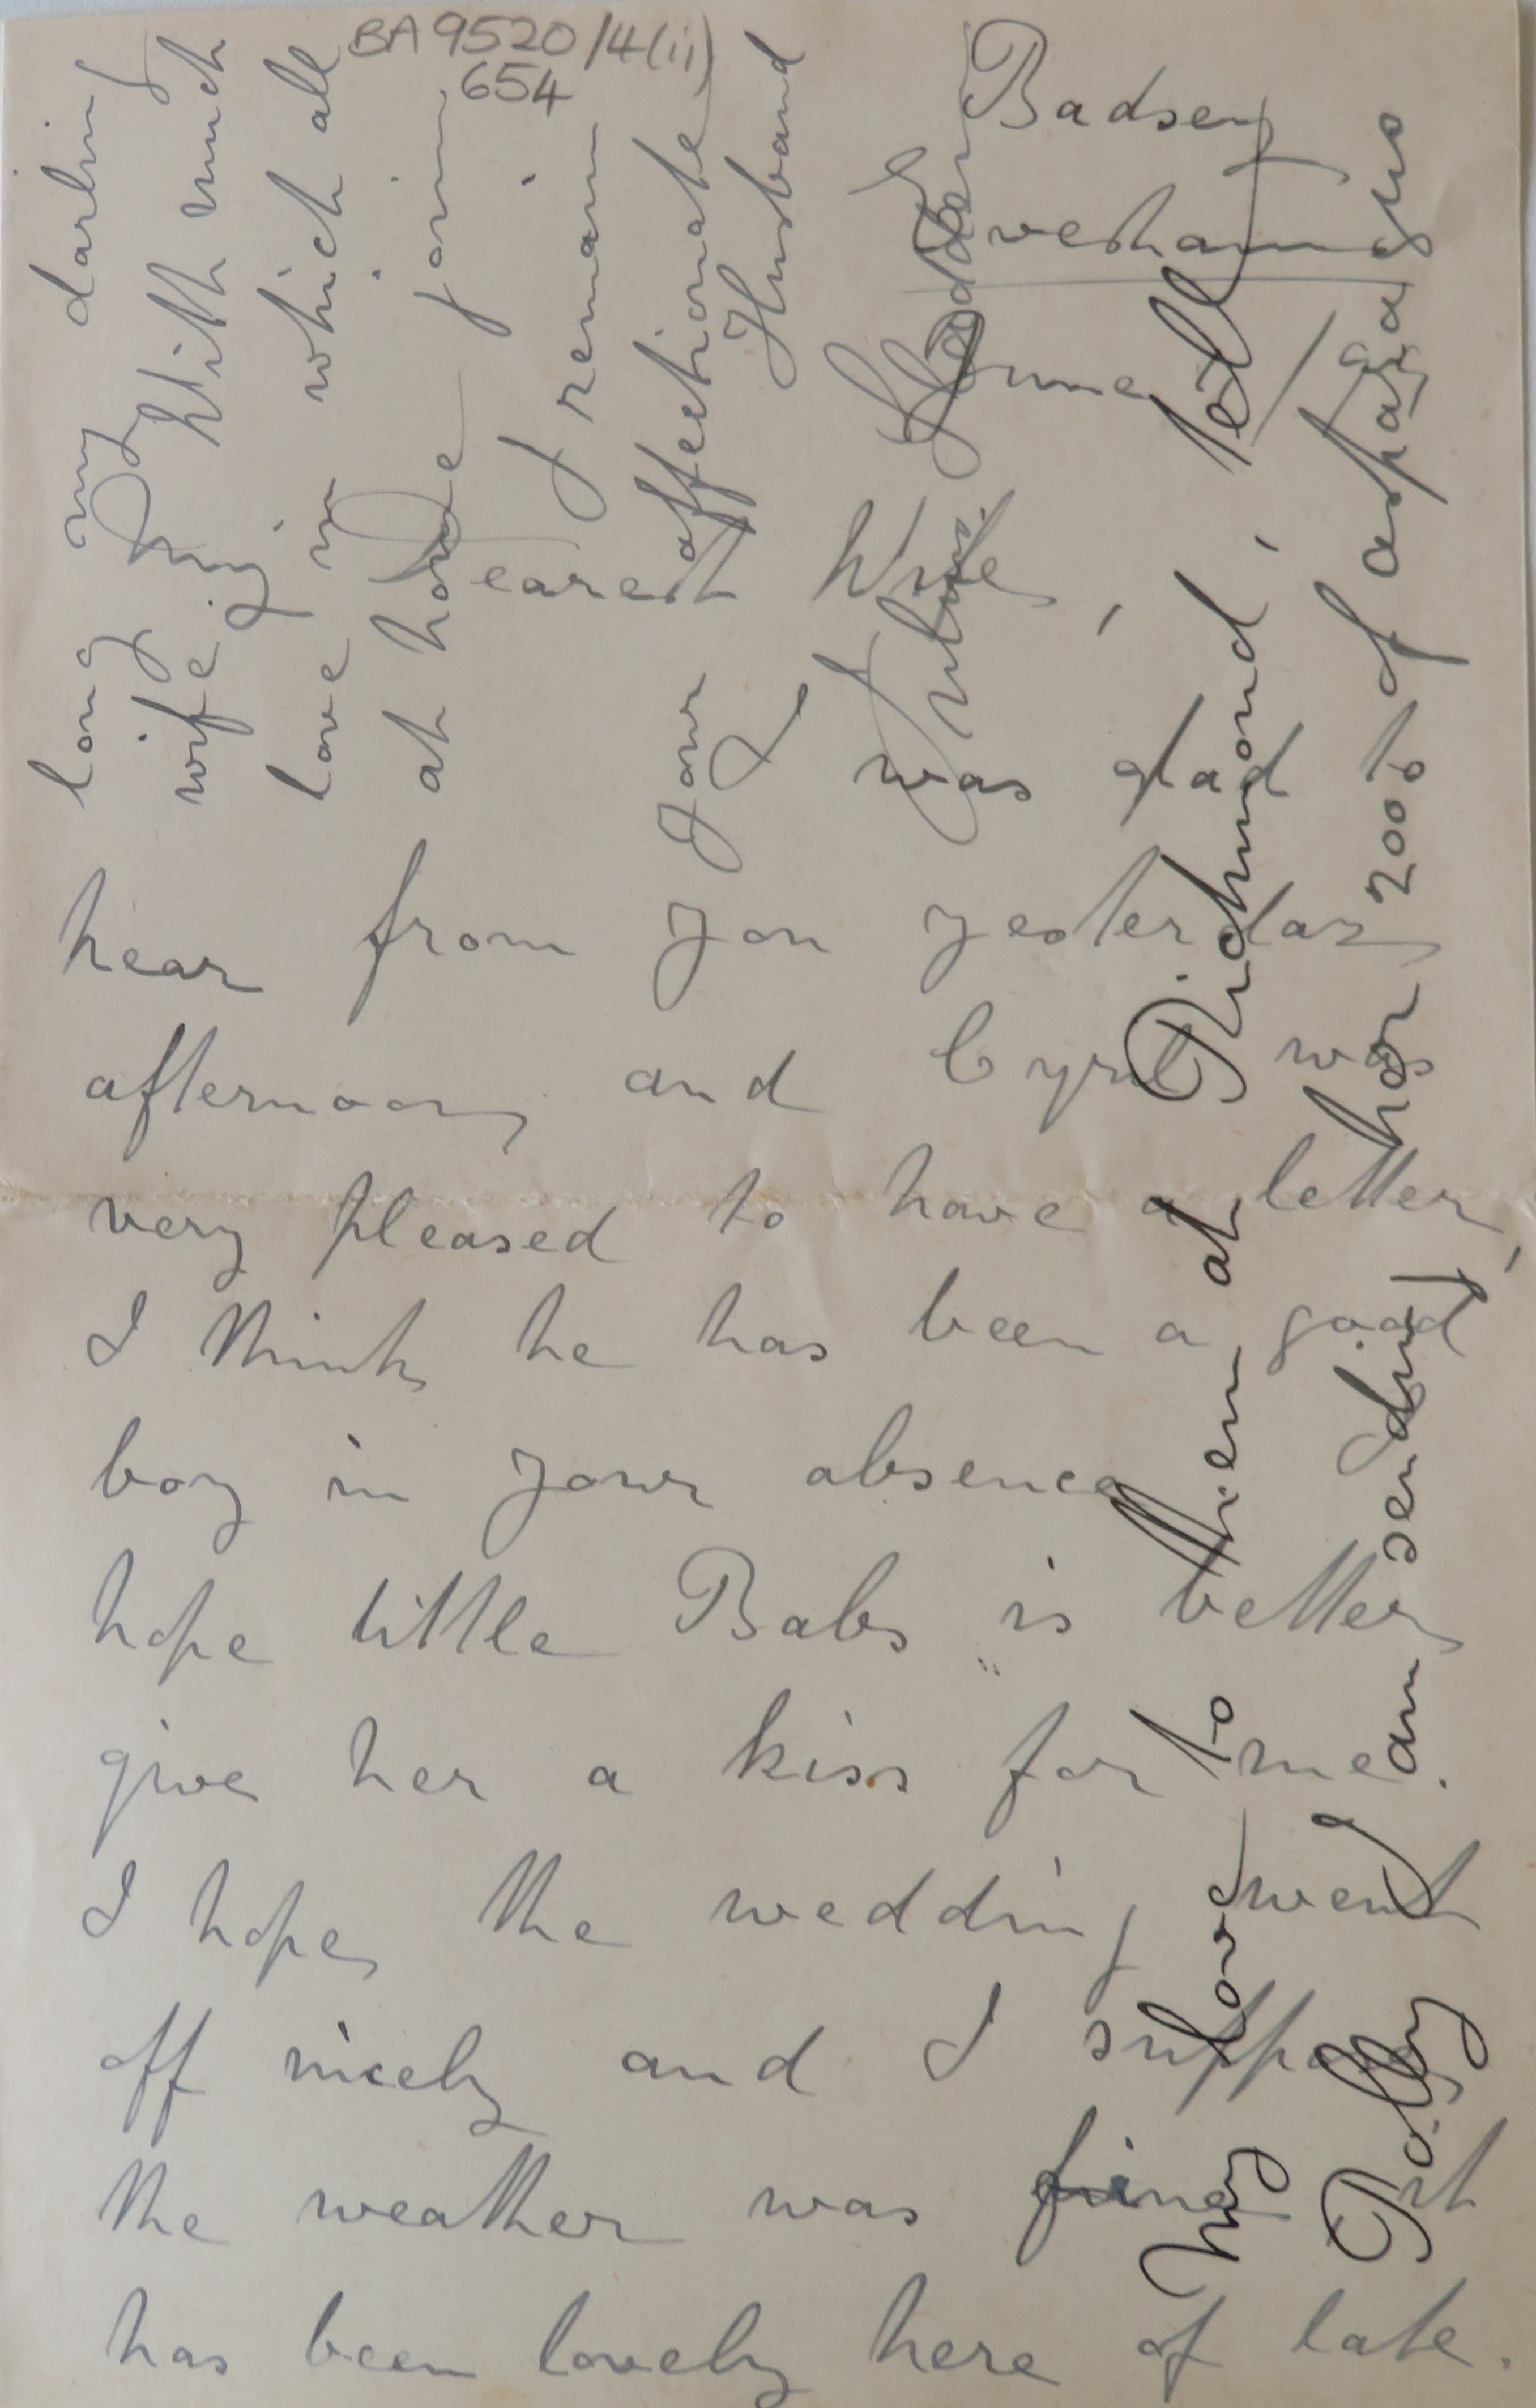 BA 9520/4(ii)
654
Badsey
Evesham
June
My Dearest Wife,
I was glad
hear from you yesterday
afternoon, and Cyril was
very pleased to have a letter,
I think he has been a good
boy in your absence
hope little "Babs" is better
give her a kiss for me.
I hope the wedding went
off nicely and I suppose
the weather was fine, it
has been lovely here of late.
long my darling
wife. With much
love in which all
at home join.
I remain
Your affectionate
Husband
Julius Sladden
My love to them at Richmond, tell
Polly I am sending her 200 of asparagus